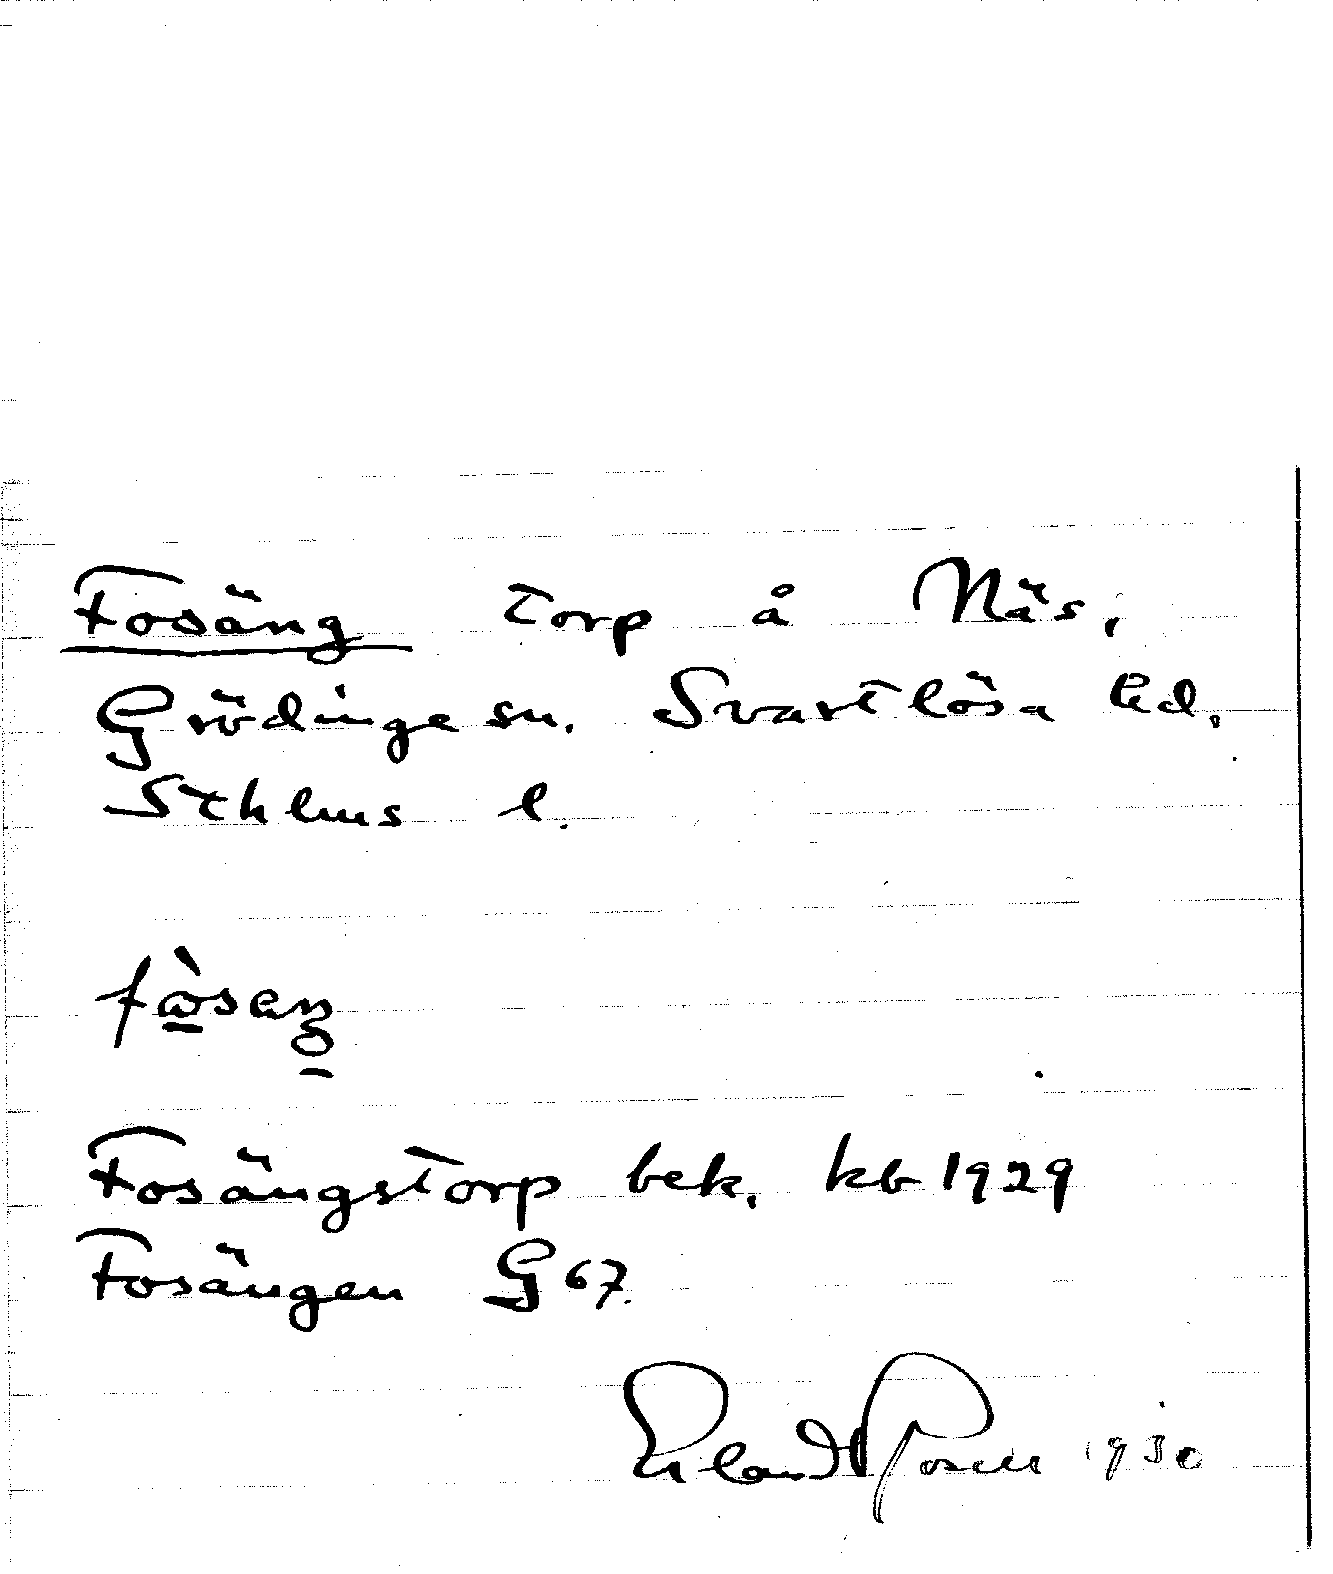 Fosäng torp å Näs,
Grödinge sn. Svartlösa hd.
Sthlms l.
Fosängstorp bek. kb 1929
Fosängen G 67.
Erland Rosell 1930